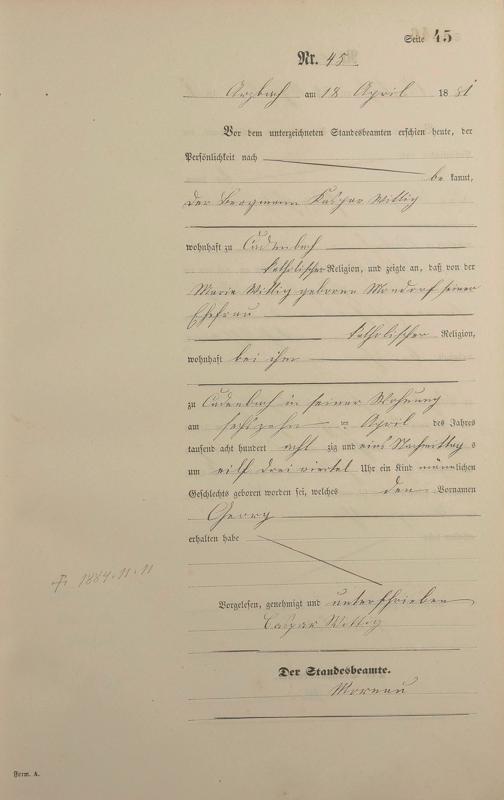 Seite 45
Nr. 45.
Arzbach am 18 April 1881
Vor dem unterzeichneten Standesbeamten erschien heute, der
Persönlichkeit nach
be kannt,
der Bergmann Kaspar Wittig
wohnhaft zu Cadenbach
katholischer Religion, und zeigte an, daß von der
Marie Wittig geborene Mondorf seiner
Ehefrau
katholischer Religion,
wohnhaft bei ihm
zu Cadenbach in seiner Wohnung
am sechszehn April des Jahres
tausend acht hundert acht zig und eins Nachmittag s
um eilf dreiviertel Uhr ein Kind männlichen
Geschlechts geboren worden sei, welches den Vornamen
Georg
erhalten habe
1884.11.11
Vorgelesen, genehmigt und unterschrieben
Caspar Wittig
Der Standesbeamte.
Moreau
Form. A.